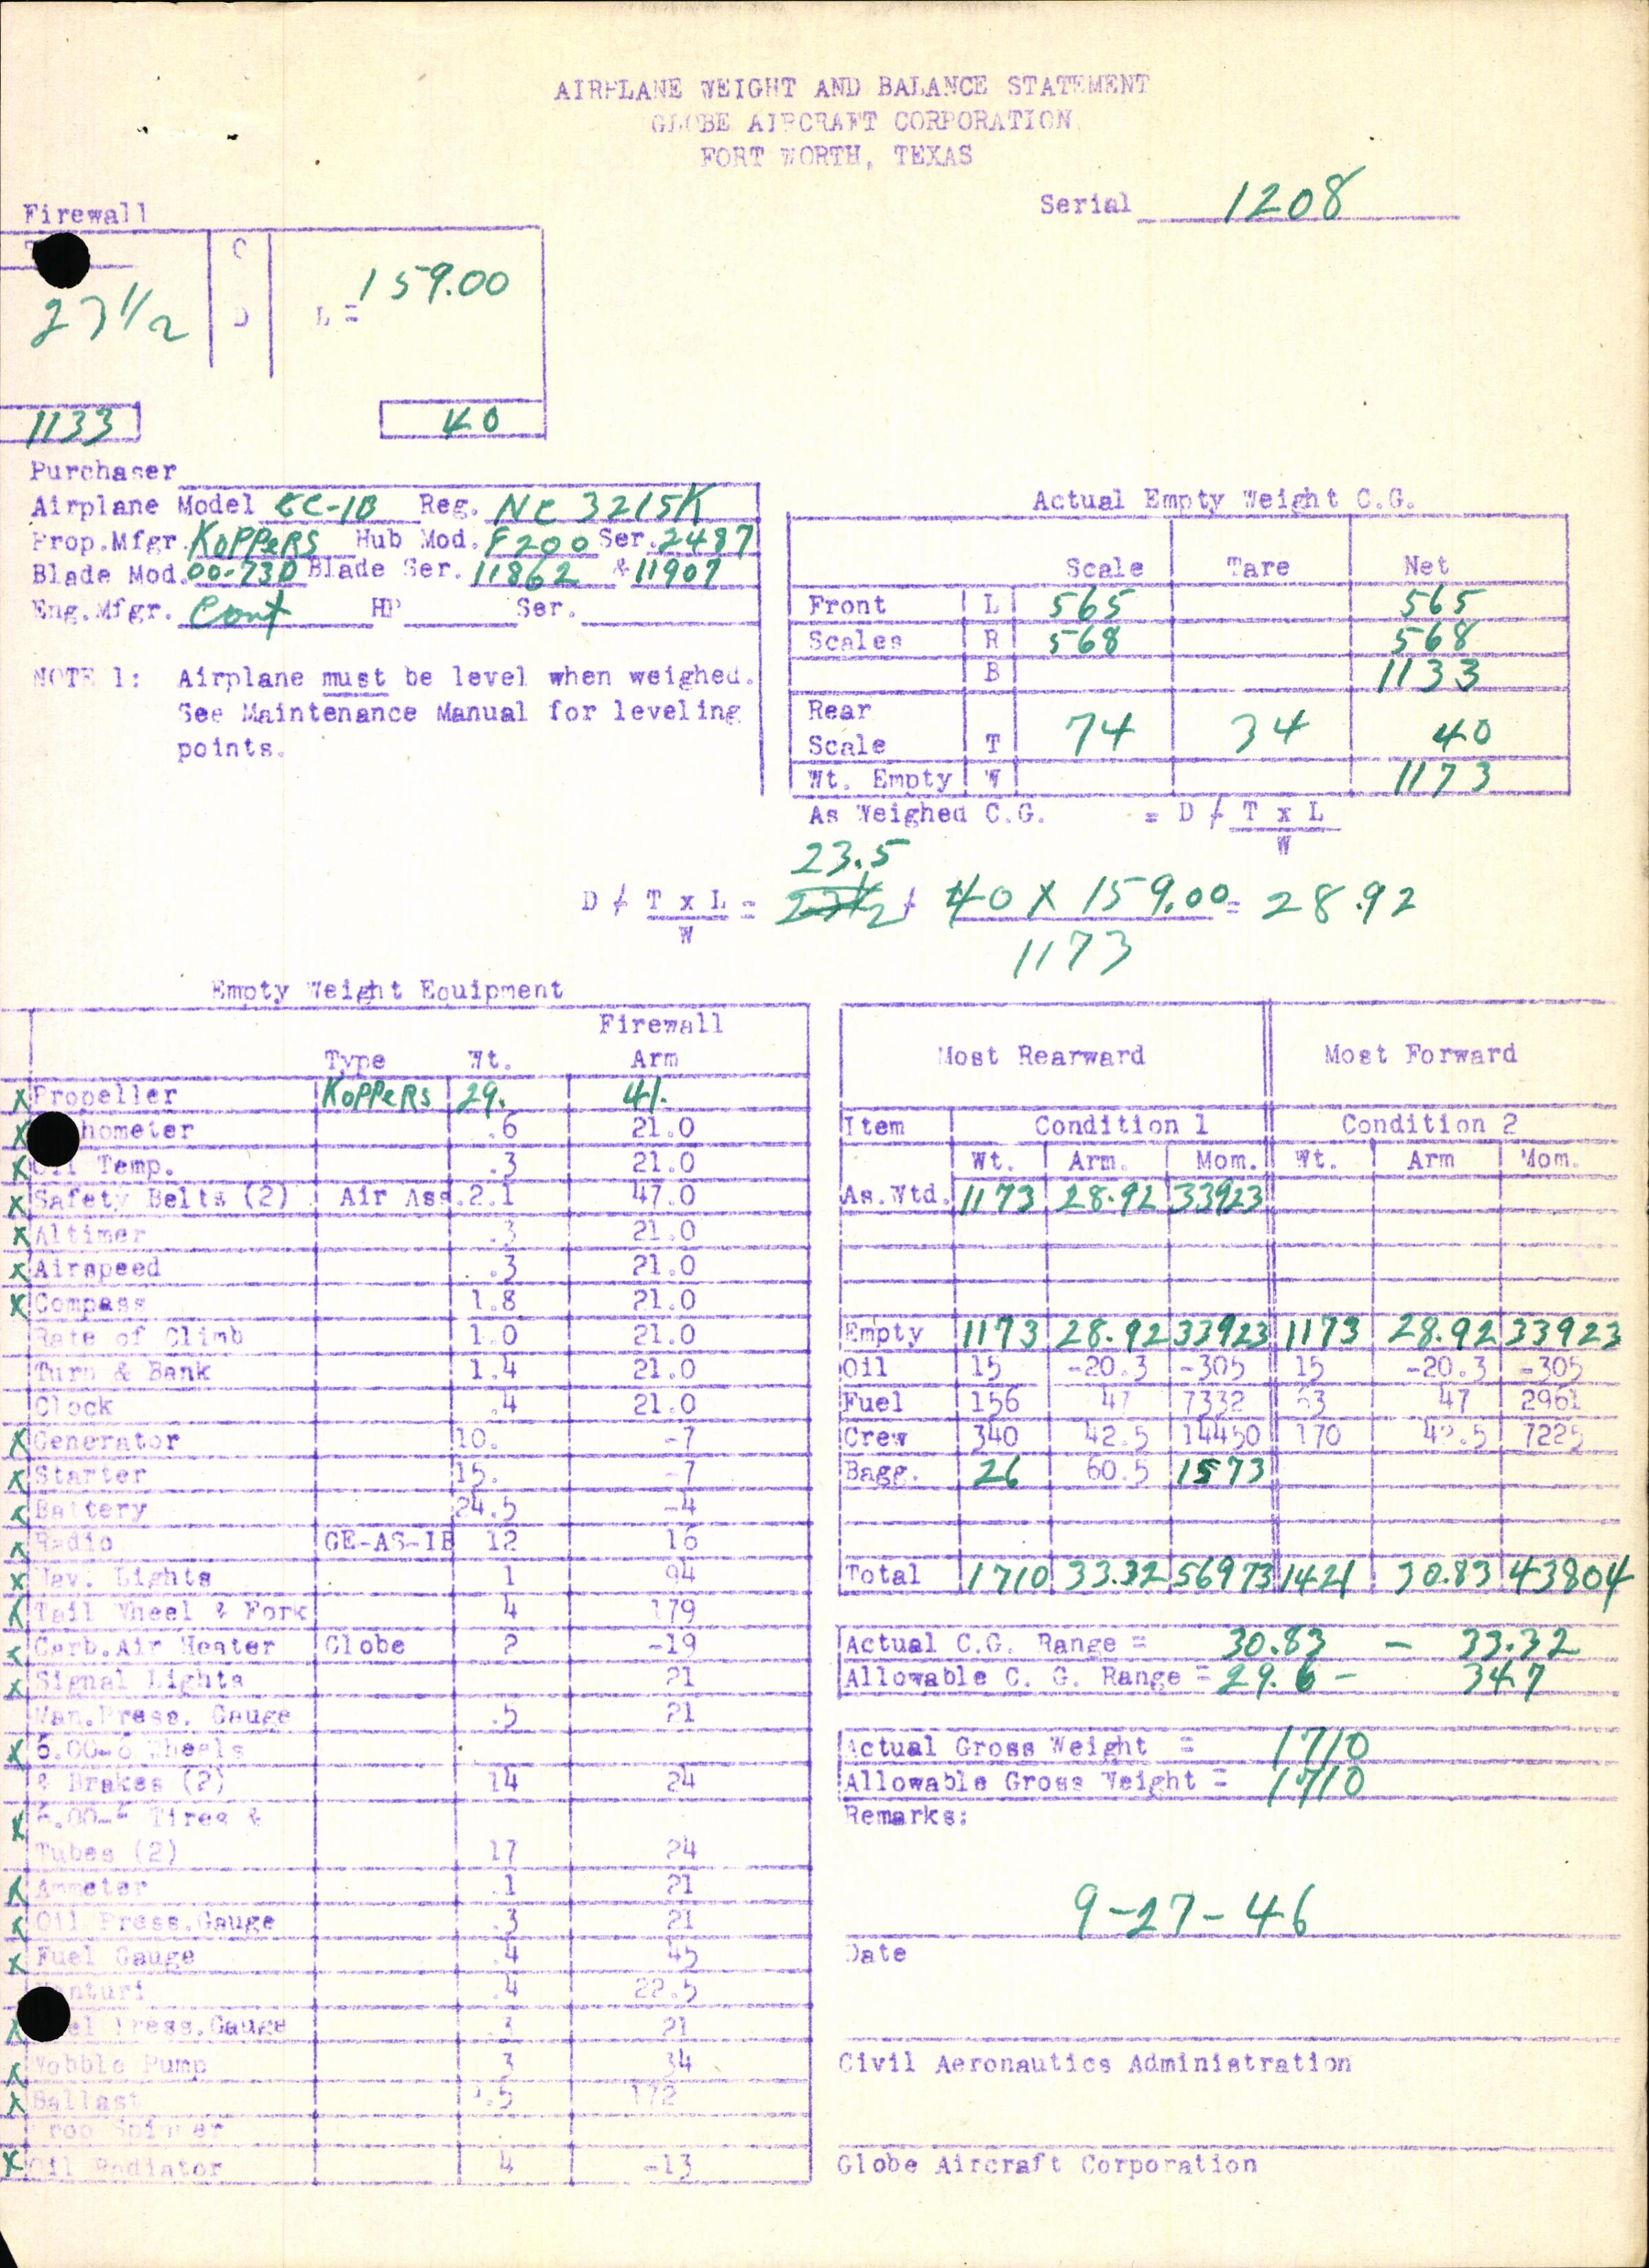 AIRPLANE WEIGHT AND BALANCE STATEMENT
GLOBE AIRCRAFT CORPORATION
FORT WORTH, TEXAS
Serial 1208
Firewall
C
159.00
23 1/2 D L =
1133 40
Purchaser
Airplane Model GC-1B Reg. NC 3215K
Prop.Mfgr. KOPPERS Hub Mod. F200 Ser. 2487
Blade Mod. 00-73D Blade Ser. 11862 & 11907
Eng.Mfgr. Cont HP Ser.
NOTE 1: Airplane must be level when weighed.
See Maintenance Manual for leveling
points.
Actual Empty Weight C.G.
Scale Tare Net
Front L 565 565
Scales R 568 568
B 1133
Rear
Scale T 74 34 40
Wt. Empty W 1173
As Weighed C.G. = D + T x L
W
23.5
D + T x L = + 40 X 159.00 = 28.92
W 1173
Empty Weight Equipment
Firewall
Type Wt. Arm
X Propeller KOPPERS 29. 41.
X hometer .6 21.0
X Oil Temp. .3 21.0
X Safety Belts (2) Air Ass. 2.1 47.0
X Altimer .3 21.0
X Airspeed .3 21.0
X Compass 1.8 21.0
Rate of Climb 1.0 21.0
Turn & Bank 1.4 21.0
Clock .4 21.0
X Generator 10. -7
X Starter 15. -7
X Battery 24.5 -4
X Radio GE-AS-1B 12 16
X Nav. Lights 1 94
X Tail Wheel & Fork 4 179
X Carb.Air Heater Globe 2 -19
X Signal Lights 21
Man.Press. Gauge .5 21
X 6.00-6 Wheels
& Brakes (2) 14 24
X 6.00-6 Tires &
Tubes (2) 17 24
X Ammeter .1 21
X Oil Press.Gauge .3 21
X Fuel Gauge .4 45
Venturi .4 22.5
X el Press.Gauge .3 21
X Wobble Pump 3 34
X Ballast .5 172
Prop Spinner
X Oil Radiator 4 -13
Most Rearward Most Forward
Item Condition 1 Condition 2
Wt. Arm. Mom. Wt. Arm Mom.
As.Wtd. 1173 28.92 33923
Empty 1173 28.92 33923 1173 28.92 33923
Oil 15 -20.3 -305 15 -20.3 -305
Fuel 156 47 7332 63 47 2961
Crew 340 42.5 14450 170 42.5 7225
Bagg. 26 60.5 1573
Total 1710 33.32 56973 1421 30.83 43804
Actual C.G. Range = 30.83 - 33.32
Allowable C. G. Range = 29.6 - 34.7
Actual Gross Weight = 1710
Allowable Gross Weight = 1710
Remarks:
9-27-46
Date
Civil Aeronautics Administration
Globe Aircraft Corporation